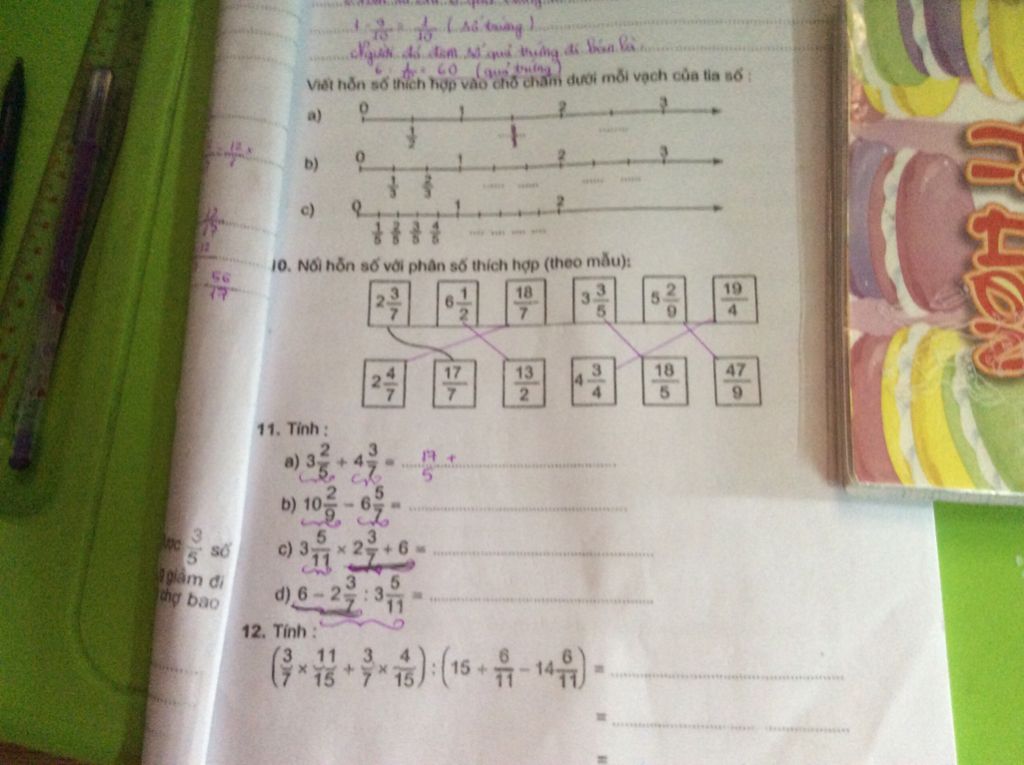 1 - 9/10 = 1/10 ( số trứng )
Người đó đem số quả trứng đi bán là
6 : 1/10 = 60 (quả trứng)
Viết hỗn số thích hợp vào chỗ chấm dưới mỗi vạch của tia số :
a) 0 1 2 3
1/2 ........
b) 0 1 2 3
1/3 2/3 ...... ...... ...... ......
c) 0 1 2
1/5 2/5 3/5 4/5 .... .... .... ....
10. Nối hỗn số với phân số thích hợp (theo mẫu):
2 3/7 6 1/2 18/7 3 3/5 5 2/9 19/4
2 4/7 17/7 13/2 4 3/4 18/5 47/9
11. Tính :
a) 3 2/5 + 4 3/7 = 17/5 +
b) 10 2/9 - 6 5/7 =
c) 3 5/11 × 2 3/7 + 6 =
d) 6 - 2 3/7 : 3 5/11 =
12. Tính :
(3/7 × 11/15 + 3/7 × 4/15) : (15 + 6/11 - 14 6/11) =
=
=
56/17
3/5 số
giảm đi
chợ bao